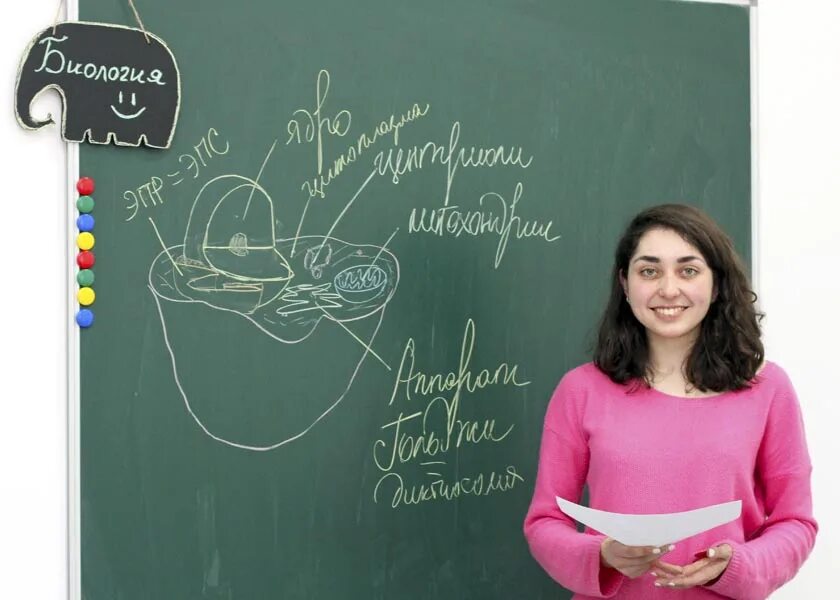 Биология
ЭПР = ЭПС
ядро
цитоплазма
центриоли
митохондрии
Аппарат
Гольджи
=
диктиосомия